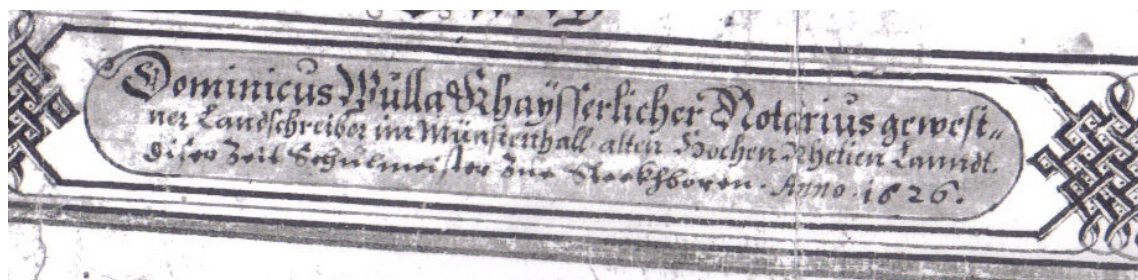 Dominicus Wülla Khaÿsserlicher Notarius gewest=
ner Landschreiber im Münsterthall alten Hochen Rhetien Lanndt.
diser Zeit Schulmeister Zue Steckhboren. Anno. 1626.